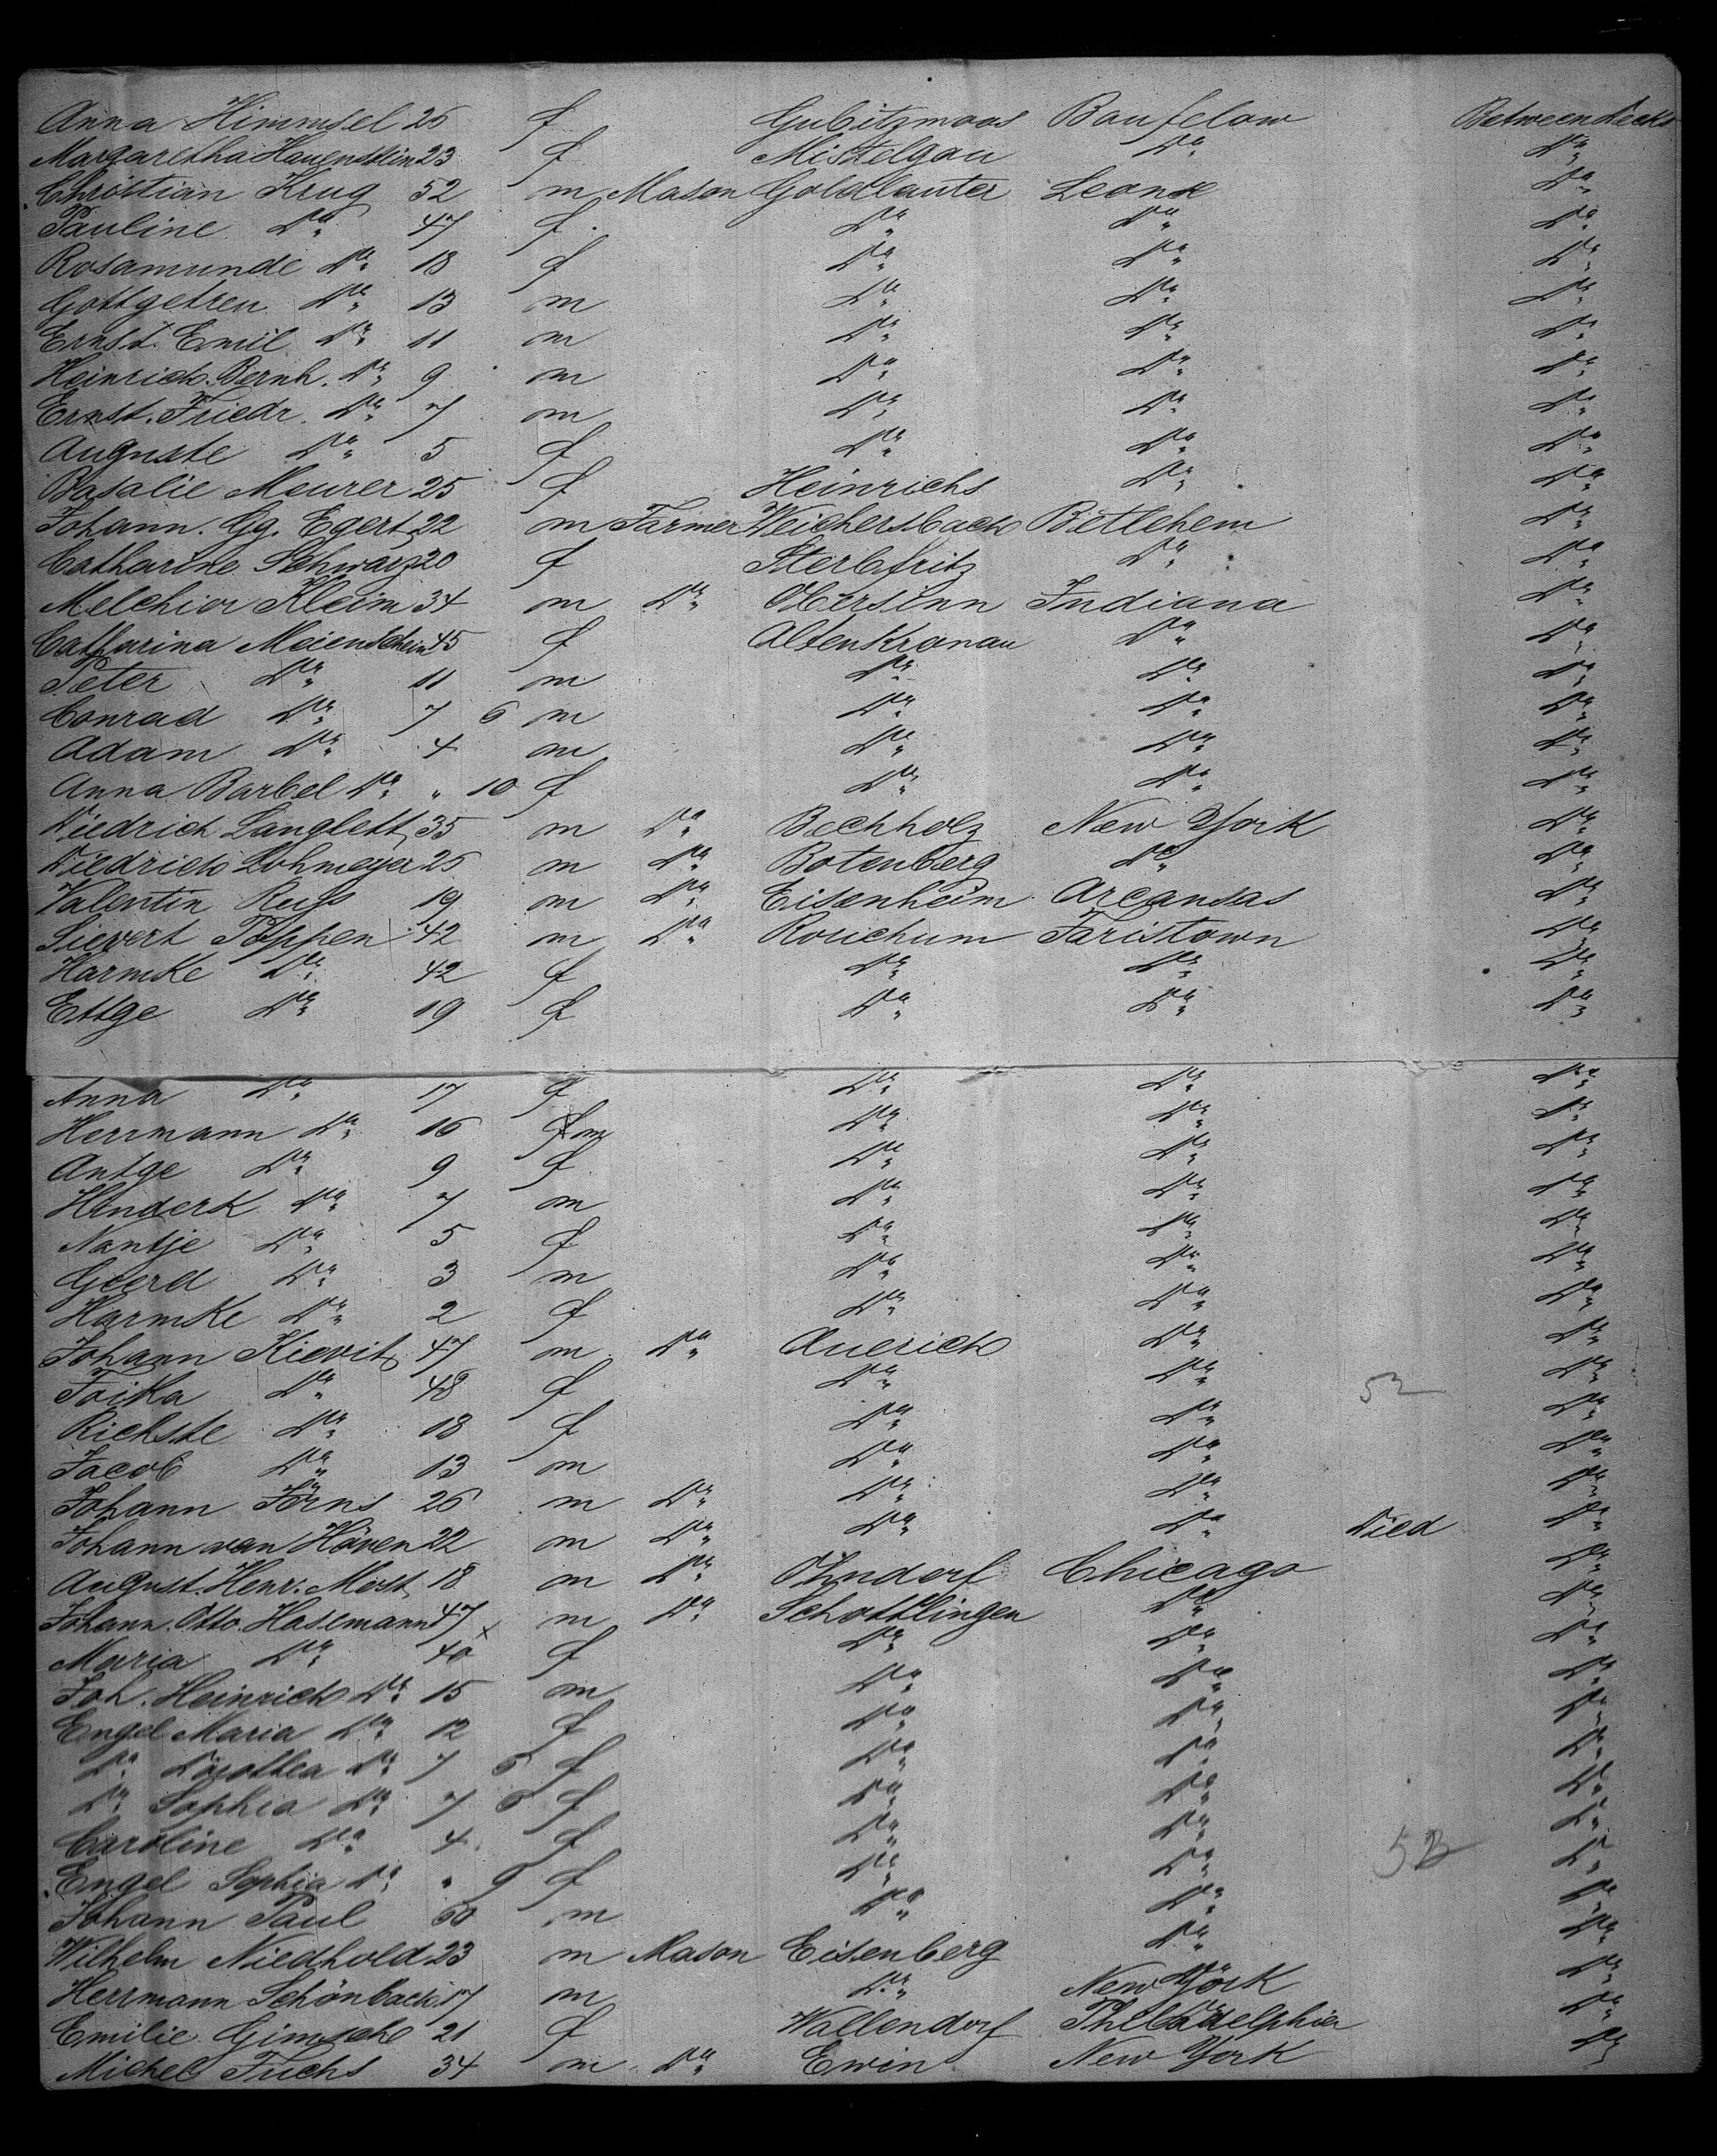 Anna Himmsel 26 f Gubitzmoos Baufelow Between decks
Margaretha Hauenstein 23 f Mistelgau Do Do
Christian Krug 52 m Mason Goldlauter Leonx Do
Pauline Do 47 f Do Do Do
Rosamunde Do 18 f Do Do Do
Gottgetreu Do 13 m Do Do Do
Ernst. Emil Do 11 m Do Do Do
Heinrich. Bernh. Do 9 m Do Do Do
Ernst. Friedr. Do 7 m Do Do Do
Auguste Do 5 f Do Do Do
Rosalie Meurer 25 f Heinrichs Do Do
Johann. Gg. Egert 22 m Farmer Weichersbach Betlehem Do
Catharine Schwarz 20 f Sterbfritz Do Do
Melchior Kleim 34 m Do Obersinn Indiana Do
Catharina Meienschein 45 f Altenkronau Do Do
Peter Do 11 m Do Do Do
Conrad Do 7 6 m Do Do Do
Adam Do 4 m Do Do Do
Anna Barbel Do " 10 f Do Do Do
Diedrich Langlett 35 m Do Bechholz New York Do
Diedrich Lohmeyer 25 m Do Botenberg Do Do
Valentin 19 m Do Eisenheim Arcansas Do
Sievert Poppen 42 m Do Rorichum Faristown Do
Harmke Do 42 f Do Do Do
Ettge Do 19 f Do Do Do
Anna Do 17 f Do Do Do
Herrmann Do 16 m Do Do Do
Antge Do 9 f Do Do Do
Hinderk Do 7 m Do Do Do
Nantje Do 5 f Do Do Do
Geerd Do 3 m Do Do Do
Harmke Do 2 f Do Do Do
Johann Kievit 47 m Do Auerich Do Do
Foika Do 48 f Do Do 52 Do
Richste Do 18 f Do Do Do
Jacob Do 13 m Do Do Do
Johann Jörns 26 m Do Do Do Do
Johann van Höven 22 m Do Do Do Died Do
August. Henr. Most 18 m Do Ohndorf Chicago Do
Johann. Otto. Hasemann 47 x m Do Schottlingen Do Do
Maria Do 40 f Do Do Do
Joh. Heinrich Do 15 m Do Do Do
Engel Maria Do 12 f Do Do Do
Do Dorothea Do 7 6 f Do Do Do
Do Sophia Do 7 6 f Do Do Do
Caroline Do 4 f Do Do Do
Engel Sophia Do " 9 f Do Do 52 Do
Johann Paul 60 m Do Do Do
Wilhelm Niedhold 23 m Mason Eisenberg Do Do
Herrmann Schönbach 17 m Do New York Do
Emilie Gimsche 21 f Wallendorf Philadelphia Do
Michel Fuchs 34 m Do Ewin New York Do